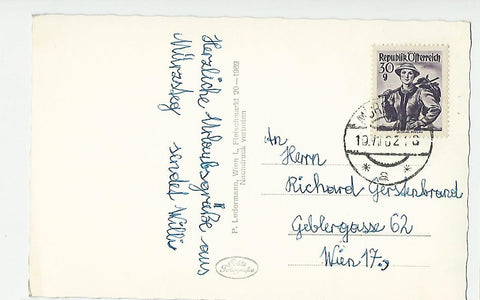 Herzliche Urlaubsgrüße aus
Mürzsteg sendet Willi
P. Ledermann, Wien I, Fleischmarkt 20 - 1962
Nachdruck verboten
Republik Österreich
30 g
An
Herrn
Richard Gerstenbrand
Geblergasse 62
Wien 17.,
Echte
Fotografie